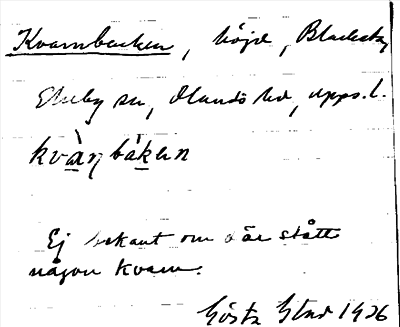 Kvarnbacken, höjd, Blacksta,
Ekeby sn, Olands hd, Upps. l.
kvàɳbákɘn
Ej bekant om där stått
någon kvarn.
Gösta 1926